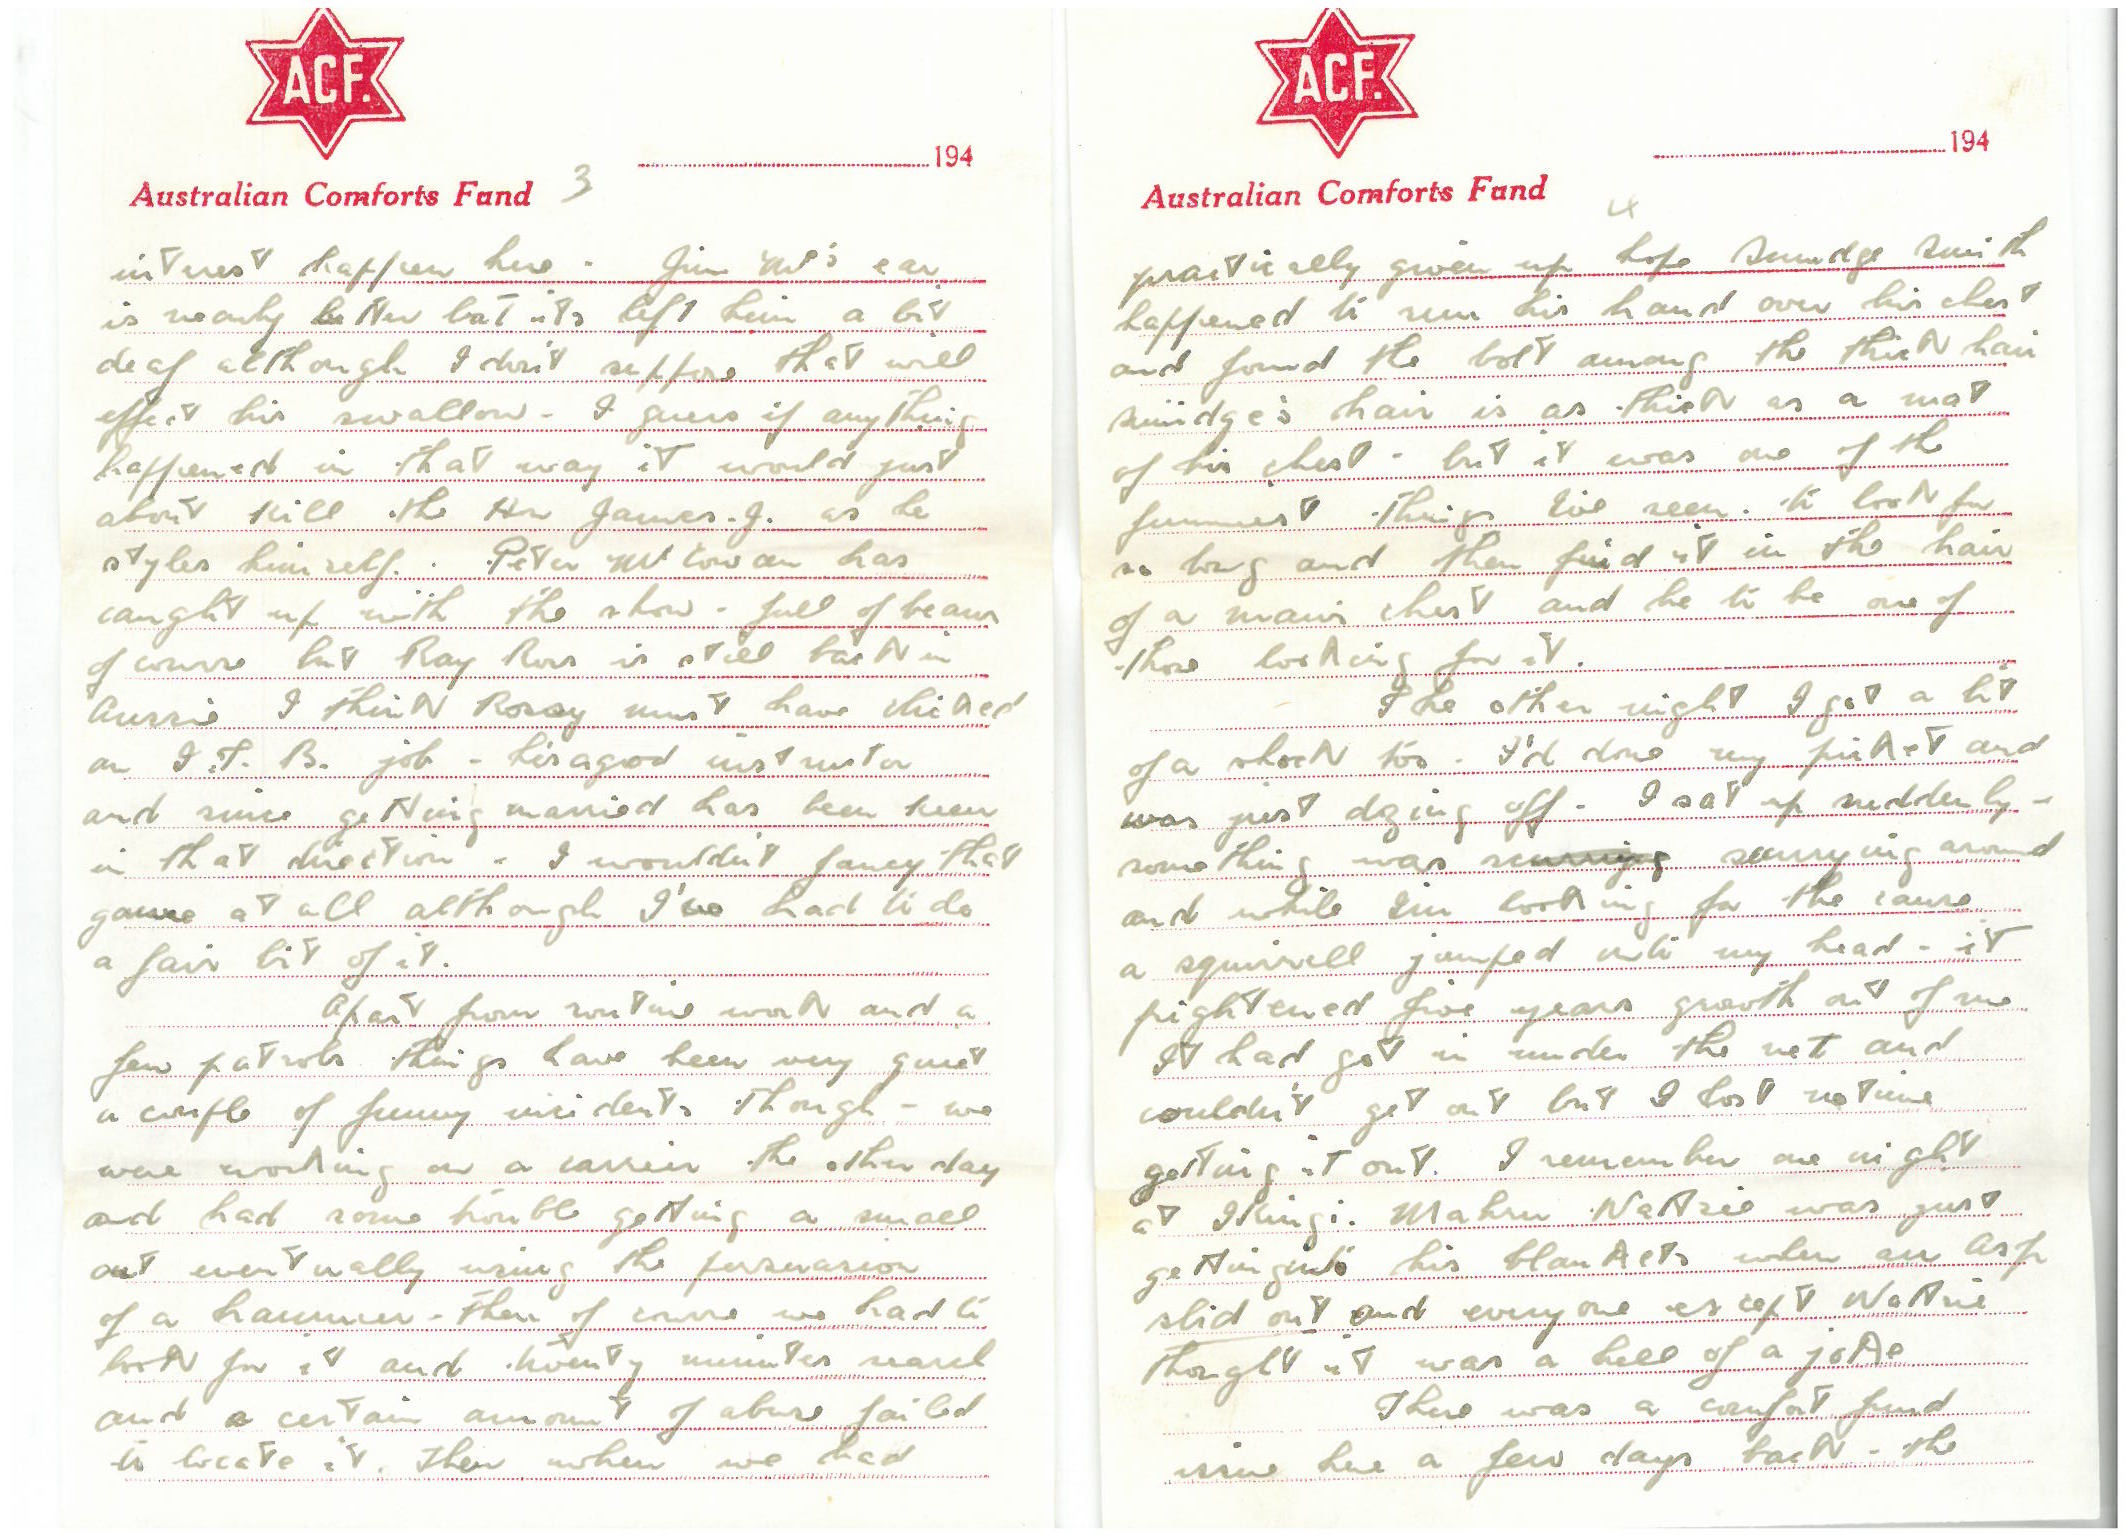 ACF.
194
Australian Comforts Fund 3
interest happen here - Jim Mc's ear
is nearly better but its left him a bit
deaf although I don't suppose that will
effect his swallow - I guess if anything
happened in that way it would just
about kill the Hon James. J. as he
styles himself. . Peter McCowan has
caught up with the show - full of beans
of course but Ray Ross is still back in
Aussie I think Rossy must have clicked
an I.T.B. job - his a good instructor
and since getting married has been keen
in that direction - I wouldn't fancy that
game at all although I've had to do
a fair bit of it.
Apart from routine work and a
few patrols things have been very quiet
a couple of funny incidents though - we
were working on a carrier the other day
and had some trouble getting a small
out eventually using the persuasion
of a hammer - then of course we had to
look for it and twenty minutes search
and a certain amount of abuse failed
to locate it. Then when we had
ACF.
194
Australian Comforts Fund
4
practically given up hope Smudge Smith
happened to run his hand over his chest
and found the bolt among the thick hair
Smidge's hair is as thick as a mat
of his chest - but it was one of the
funniest things I've seen. to look for
so long and then find it in the hair
of a mans chest and he to be one of
those looking for it.
The other night I got a bit
of a shock too. I'd done my picket and
was just dozing off - I sat up suddenly -
something was scurrying around
and while I'm looking for the cause
a squirrell jumped onto my head - it
frightened five years growth out of me
It had got in under the net and
couldn't get out but I lost no time
getting it out. I remember one night
at Ikingi. Mahru Watsie was just
getting into his blankets when an asp
slid out and everyone except Watsie
thought it was a hell of a joke
There was a comfort fund
issue here a few days back - the